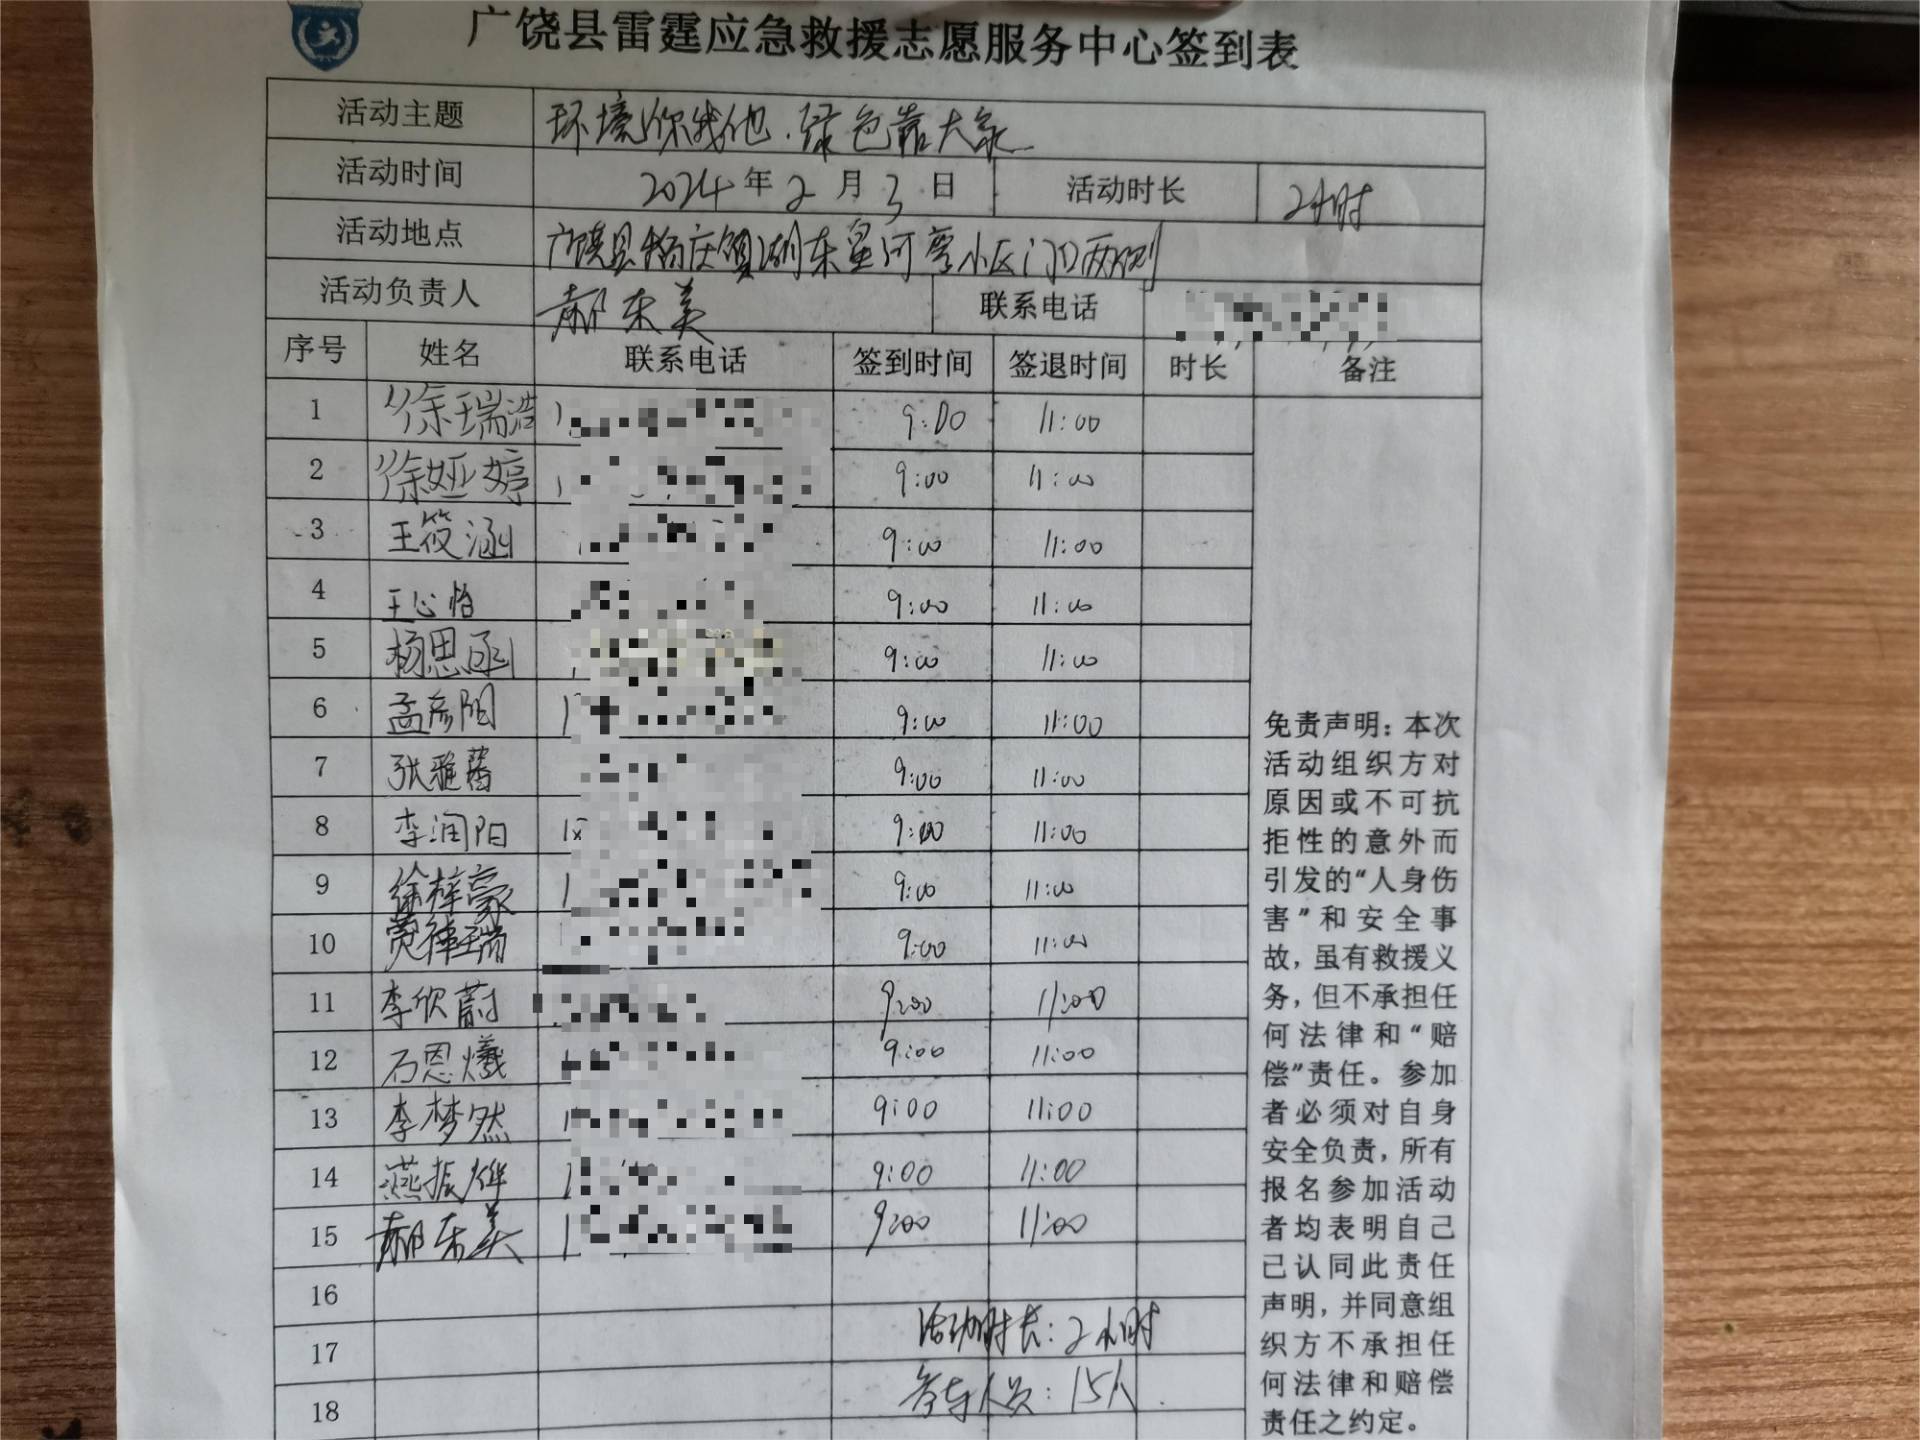 广饶县雷霆应急救援志愿服务中心签到表
活动主题 环境你我他.绿色靠大家
活动时间 2024年2月3日 活动时长 2小时
活动地点 广饶县稻庄镇湖东星河湾小区门口两侧
活动负责人 郝东美 联系电话
序号 姓名 联系电话 签到时间 签退时间 时长 备注
1 徐瑞浩 9:00 11:00
2 徐娅婷 9:00 11:00
3 王筱涵 9:00 11:00
4 王心怡 9:00 11:00
5 杨思函 9:00 11:00
6 孟彦阳 9:00 11:00
7 张雅茜 9:00 11:00
8 李润阳 9:00 11:00
9 徐梓豪 9:00 11:00
10 瑞 9:00 11:00
11 李欣蔚 9:00 11:00
12 石恩爔 9:00 11:00
13 李梦然 9:00 11:00
14 燕振烨 9:00 11:00
15 郝东美 9:00 11:00
16
17 活动时长:2小时
18 参与人员:15人
免责声明:本次
活动组织方对
原因或不可抗
拒性的意外而
引发的“人身伤
害”和安全事
故,虽有救援义
务,但不承担任
何法律和“赔
偿”责任。参加
者必须对自身
安全负责,所有
报名参加活动
者均表明自己
已认同此责任
声明,并同意组
织方不承担任
何法律和赔偿
责任之约定。